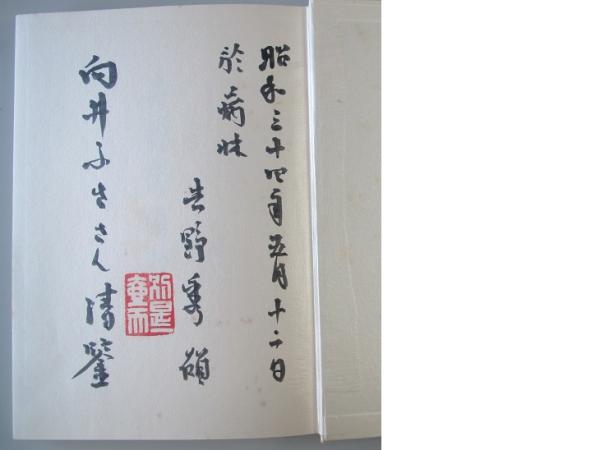 昭和三十四年五月十二日
於病牀
吉野秀雄
向井ふささん清鑒